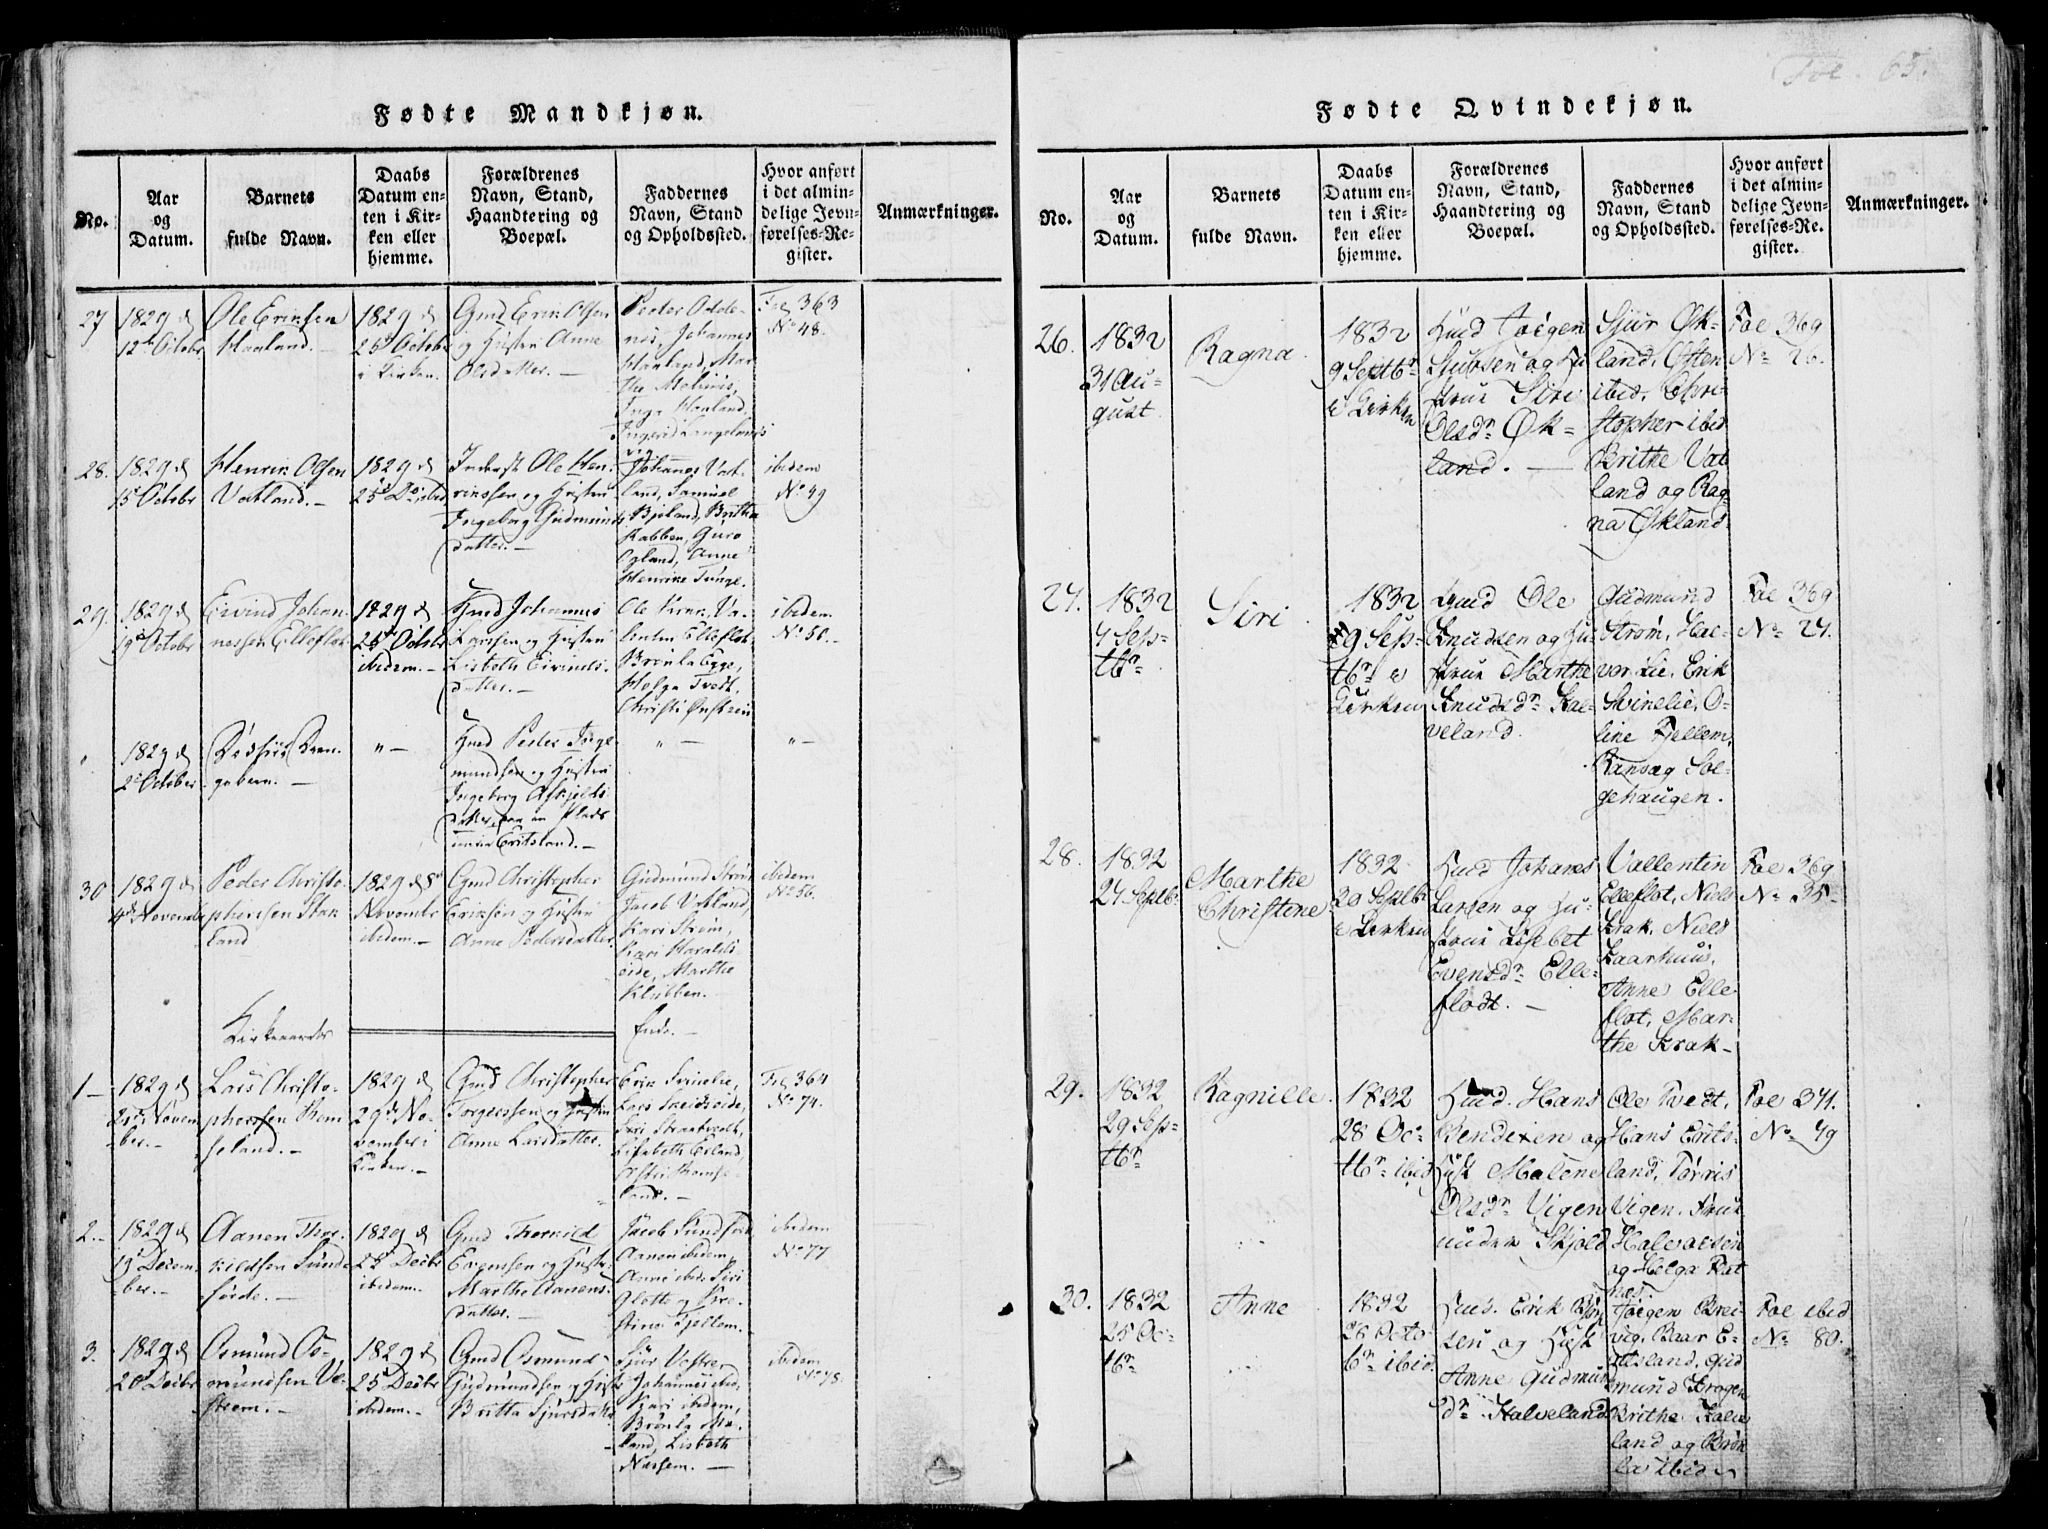 Fødte Mandkjøn.
No.
Aar
og
Datum.
Barnets
fulde Navn.
Daabs
Datum en-
ten i Kir-
ken eller
hjemme.
Forældrenes
Navn, Stand,
Haandtering og
Boepæl.
Faddernes
Navn, Stand
og Opholdssted.
Hvor anført
i det almin-
delige Jevn-
førelses-Re-
gister.
Anmærkninger.
27
1829 d
12te Octobr
Ole Eriksen
Haaland. —
1829 d
25 Octobr
i Kirken.
Gmd Erik Olsen
og Hustru Anne
Olsdatter. —
Peder
Johannes
Haaland, Mar-
the
Inga Haaland,
Ingerid Langelands
Fol 363
No 48.
28.
1829 d
15 Octobr
Henrik Olsen
Vatland. —
1829 d
25 Do ibid
Ole Hen-
riksen og Hustru
Ingeborg Gudmunds
datter. —
Johannes Vat-
land, Samuel
Bjeland, Britha
Kabben, Guro
Øgland, Anne
Henrike Tunge.
ibidem
No 49
29.
1829 d
19 October
Eivind Johan-
nessen Elleflot
1829 d
25 Octobr
ibidem. —
Gmd Johannes
Larssen og Hustru
Lisbeth Eivinds-
datter. —
Ole Krak, Va-
lentin Elleflot,
Brynla Egge,
Helga Tvedt,
Christi
ibidem
No 50. —
"
1829 d
2 October
gebarn. —
" —
Gmd Peder Inge-
mundsen og Hustru
Ingeborg Askjelds
datter, paa en Plads
under Eritsland. —
" —
" —
30
1829 d
4de Novemb
Peder Christo-
phersen Stak
land
1829 d 8
Novembr
ibidem. —
Gmd Christopher
Eriksen og Hustru
Anne Pedersdatter.
Gudmund Strøm
Jacob Vatland,
Kari Strøm,
Kari Haralds-
eide, Marthe
Klubben. —
ibidem
No 56.
Kirkeaarets
Ende. —
1 —
1829 d
Novem
ber. —
Lars Christo-
phersen Thom
seland. —
1829 d
29 No-
vember i
Kirken. —
Gmd Christopher
Torgersen og Hustru
Anne Larsdatter.
Erik Svinelie,
Lars Skeidseide,
Lisebeth Erland
land. —
Fol 364
No 74.
2. —
1829 d
13 Decem-
ber. —
Aanen Thor-
kildsen Sund-
førde. —
1829 d
25 Decbr
ibidem.
Gmd Thorkild
Evensen og Hustru
Marthe Aanens-
datter. —
Jacob Sundførd
Aanen ibidem,
Anne ibid, Siri
Flotte og Kir-
stine Fjellem.
ibidem
No 77
3.
1829 d
20 Decbr
Osmund Os-
mundsen Ve-
strem. —
1829 d
25 Decbr
ibidem. —
Gmd Osmund
Gudmundsen og Hustru
Britta Sjursdatter
Sjur Vestrem
Johannes ibid,
Kari ibidem,
Brynla Ma-
land, Lisbeth
Nærsem. —
ibidem
No 78.
Fol. 65.
Fødte Qvindekjøn.
No.
Aar
og
Datum.
Barnets
fulde Navn.
Daabs
Datum en-
ten i Kir-
ken eller
hjemme.
Forældrenes
Navn, Stand,
Haandtering og
Boepæl.
Faddernes
Navn, Stand
og Opholdssted.
Hvor anført
i det almin-
delige Jevn-
førelses-Re-
gister.
Anmærkninger.
26.
1832
31 Au-
gust.
Ragna.
1832
9 Septbr
i Kirken
Huusmd Jørgen
Sjursen og Hu
strue Siri
Olsdr Øk-
land. —
Sjur Øk-
land, Osten
ibid, Chri-
stopher ibid
Brithe Vat
land og Rag
na Økland.
Foe 369
No 26.
27.
1832
4 Sep-
tbr
Siri
1832
9 Sep-
tbr i
Kirken
Huusmd Ole
Knudsen og Hu-
strue Marthe
Knudsdr Hal-
veland.
Gudmund
Strøm, Hal-
vor Lie, Erik
Svinelie, O-
line Fjellem,
Ransæg Sol-
gehaugen.
Foe 369
No 27.
28.
1832
27 Septbr
Marthe
Christine
1832
29 Septbr
i Kirken
Huusmd Johanes
Larsen og Hu-
strue Lisebet
Evensdr Elle-
flodt. —
Vallentin
Elleflot, Niels
Krak, Niels
Kaarhuus,
Anne Elle
flot, Mar-
the Krak —
Foe 369
No 35
29.
1832
29 Sep-
tbr
Ragnille.
1832
28 Oc-
tbr ibid
Huusmd. Hans
Bendixen og
Hust Malene
Olsdr Vigen
under Skjold
Ole Tvedt,
Hans Erits-
land, Tørris
Vigen, Knut
Halvorsen
og Helga Rat
nes.
Foe 371.
No 79
30.
1832
25 Oc-
tbr
Anne
1832
28 Octo-
br ibid.
Huus. Erik
sen og Hust
Anne Gudmun
dr Halveland
Jørgen Brei-
vig, Baar E-
ritsland, Gud
mund Krogen
Brithe Halve
land og Brøn
la ibid
Foe ibid
No 80.